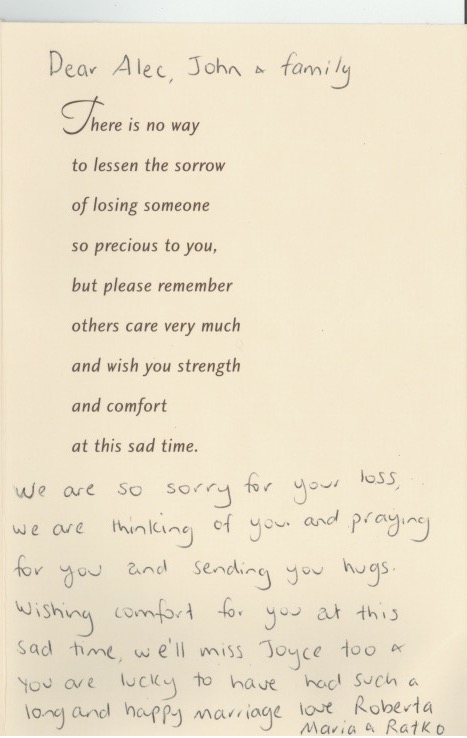 Dear Alec, John & family
There is no way
to lessen the sorrow
of losing someone
so precious to you,
but please remember
others care very much
and wish you strength
and comfort
at this sad time.
We are so sorry for your loss,
we are thinking of you. and praying
for you and sending you hugs.
Wishing comfort for you at this
sad time, we'll miss Joyce too &
you are lucky to have had such a
long and happy marriage love Roberta
Maria & Ratko